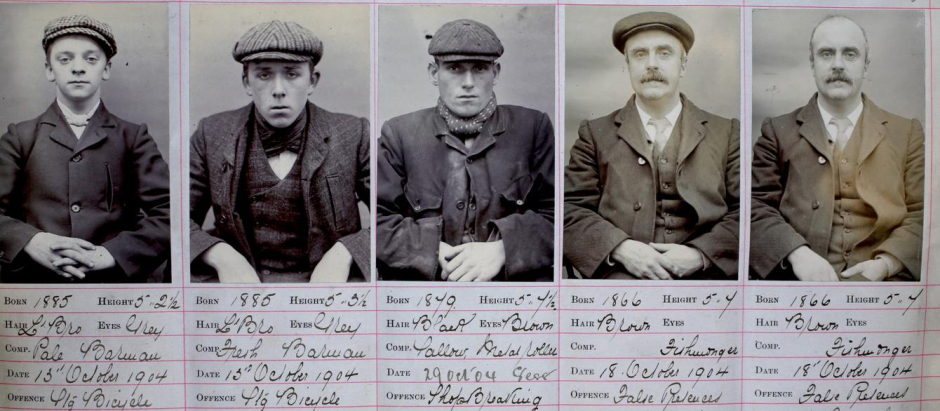 BORN 1885 HEIGHT 5-2½
HAIR L' Bro EYES Grey
COMP. Pale Barman
DATE 13" October 1904
OFFENCE Stg Bicycle
BORN 1885 HEIGHT 5-3½
HAIR L' Bro EYES Grey
COMP. Fresh Barman
DATE 13" October 1904
OFFENCE Stg Bicycle
BORN 1879 HEIGHT 5-4½
HAIR Black EYES Brown
COMP. Sallow Metal roller
DATE 29 Oct '04
OFFENCE Shop Breaking
BORN 1866 HEIGHT 5-4
HAIR Brown EYES
COMP. Fishmonger
DATE 18 October 1904
OFFENCE False Pretences
BORN 1866 HEIGHT 5-4
HAIR Brown EYES
COMP. Fishmonger
DATE 18" October 1904
OFFENCE False Pretences